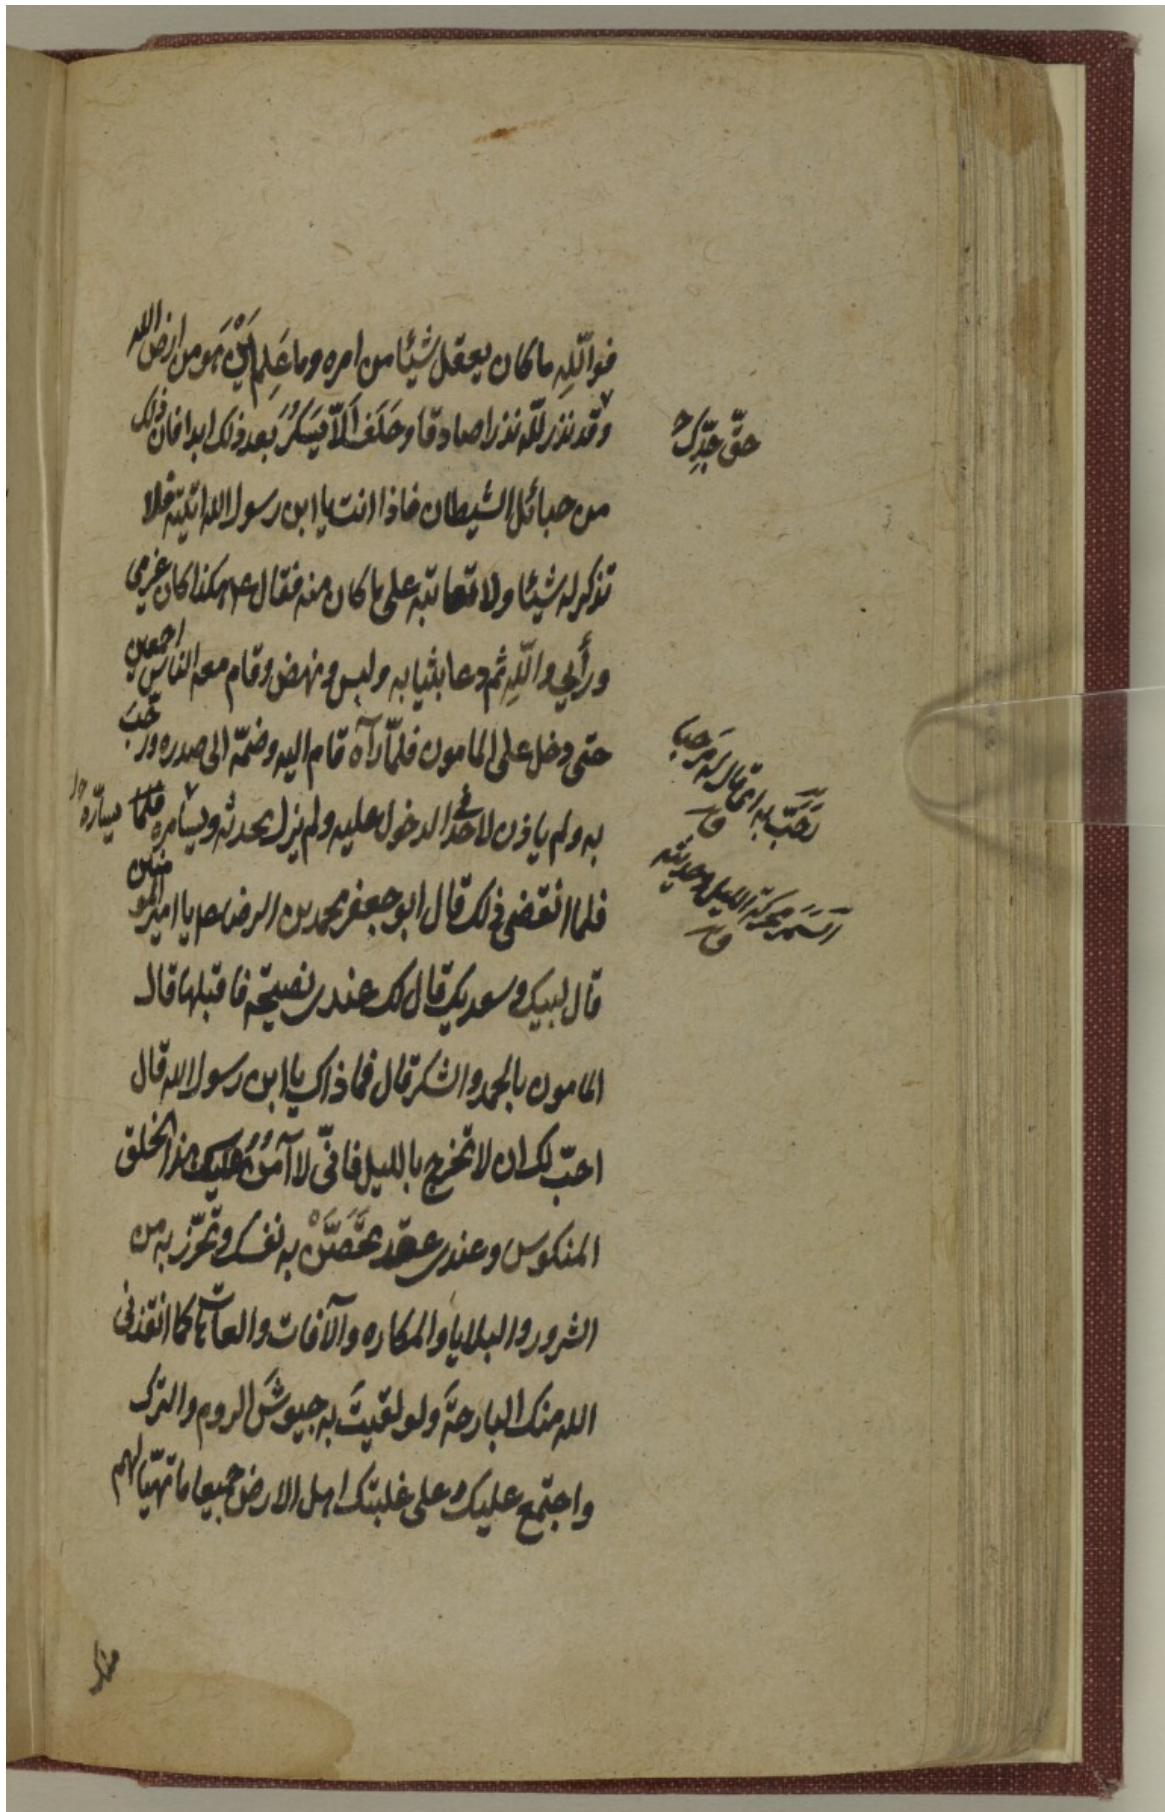 فواللّهِ ما كان يعقل شيئا من امره وما عَلِم اَيْنَ هَو من ارض الله
وقد نذر للّه نذرا صادقا وحَلَف اَلّا يَسكَرُ بعد ذلك ابدا فان ذلك
حقّ جدّك
من حبائل الشيطان فاذا انت يا ابن رسول الله اتيته فلا
تذكر له شيئا ولا تعاتبه على ما كان منه فقال ع هكذا كان عزمي
ورأيي واللّهِ ثم دعا بثيابه ولبس ونهض وقام معه الناس اجمعين
حتى دخل على المامون فلمّا رآه قام اليه وضمّه الى صدره ورحّبَ
به ولم ياذن لاحد في الدخول عليه ولم يزل يحدثه ويسامره فلما
يسارّه
رَحَّبَ به اى قال له مَرحَبا
ق
فلما انقضى ذلك قال ابو جعفر محمد بن الرضا ع يا امير المومنين
السَّمَر محركة الليل وحديثه
ق
قال لبيك وسعديك قال لك عندى نصيحة فاقبلها قال
المامون بالحمد والشكر قال فما ذاك يا ابن رسول الله قال
احبّ لك ان لا تخرج بالليل فانّى لا آمَنُ عليك هذا الخلق
المنكوس وعندى عقد تَحَصَّنْ به نفسك وتحرّز به من
الشرور والبلايا والمكاره والآفات والعاهات كما انقذنى
الله منك البارحةَ ولو لقيتَ به جيوشَ الروم والترك
واجتمع عليك وعلى غلبتك اهل الارض جميعا ما تهيّا لهم